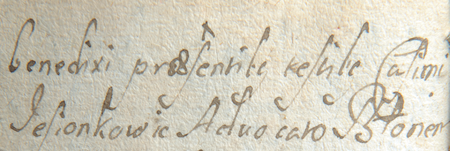 benedixi præsentibz testibz Casimi
Jesionkowic Advocato Błonen